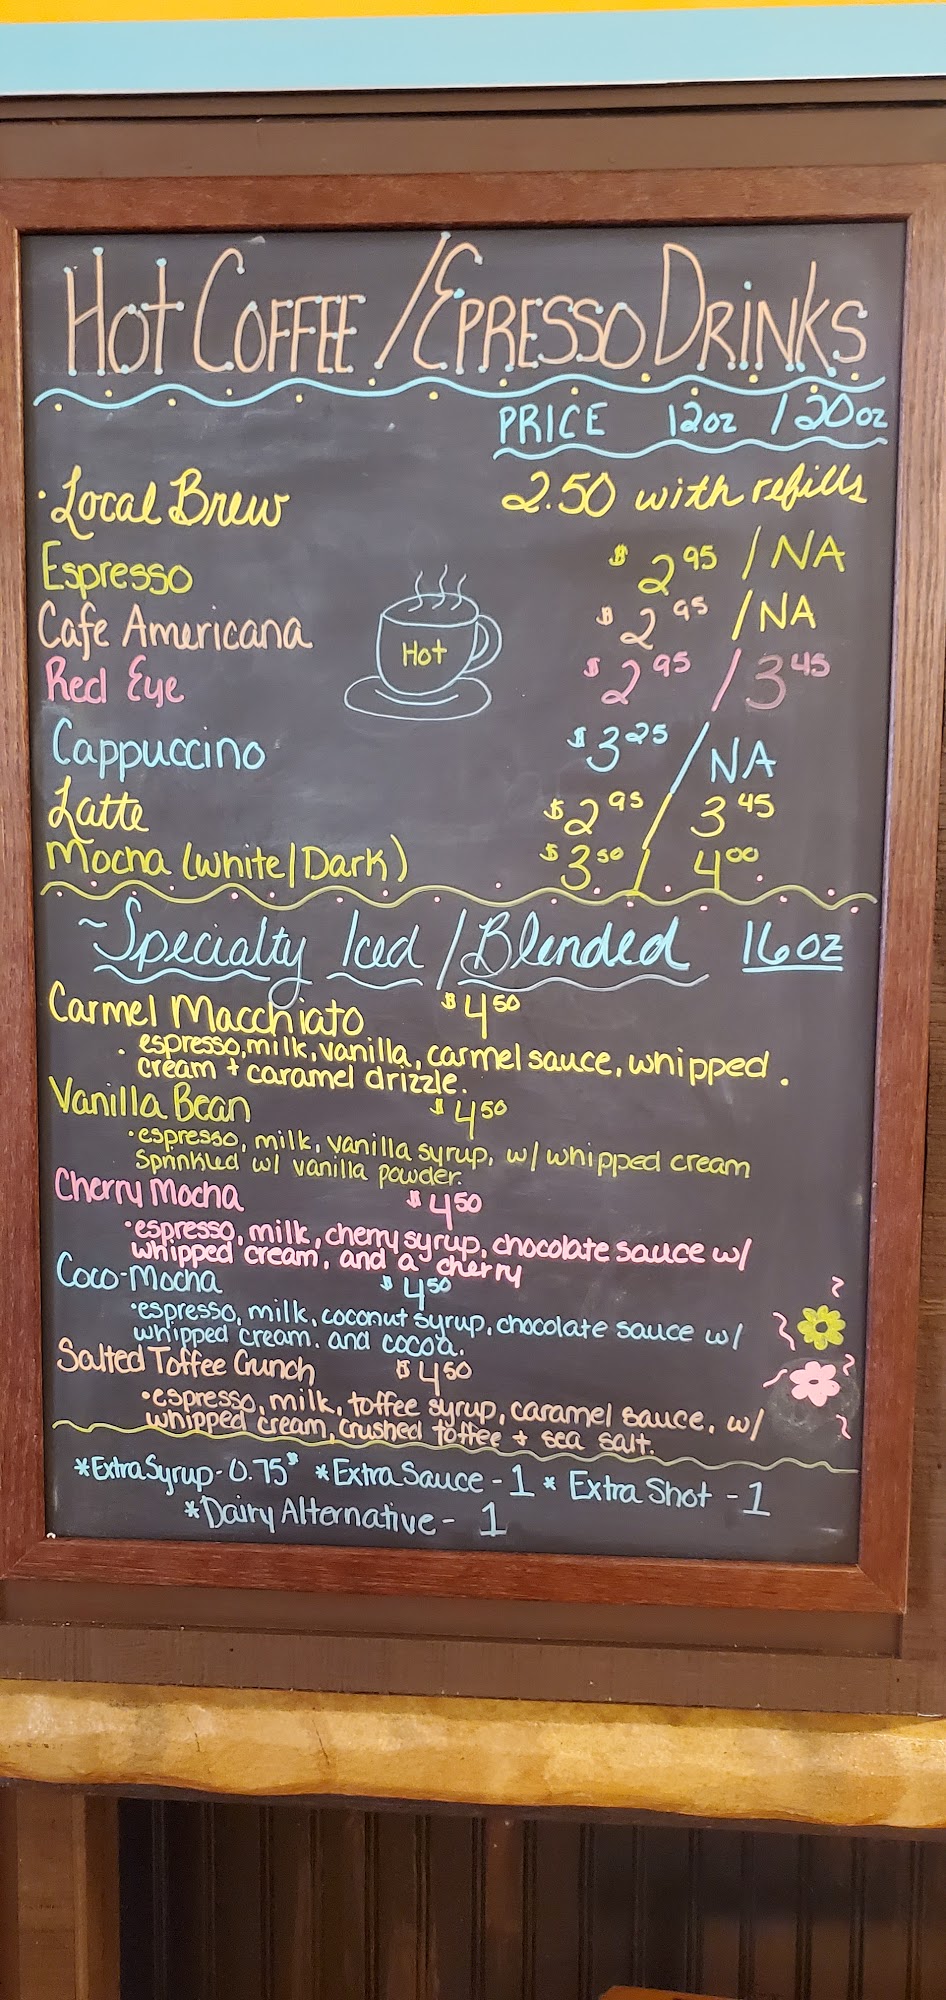 Hot Coffee / Epresso Drinks
PRICE 12oz / 20oz
· Local Brew 2.50 with refills
Espresso $2.95 / NA
Cafe Americana $2.95 / NA
Hot
Red Eye $2.95 / 3.45
Cappuccino $3.25 / NA
Latte $2.95 / 3.45
Mocha (White/Dark) $3.50 / 4.00
~Specialty Iced / Blended 16oz
Carmel Macchiato $4.50
· espresso, milk, vanilla, carmel sauce, whipped
cream + caramel drizzle.
Vanilla Bean $4.50
· espresso, milk, vanilla syrup, w/ whipped cream
Sprinkled w/ vanilla powder.
Cherry Mocha $4.50
· espresso, milk, cherry syrup, chocolate sauce w/
whipped cream, and a cherry
Coco-Mocha $4.50
· espresso, milk, coconut syrup, chocolate sauce w/
whipped cream. and cocoa.
Salted Toffee Crunch $4.50
· espresso, milk, toffee syrup, caramel sauce, w/
whipped cream, crushed toffee + sea salt.
*Extra Syrup - 0.75$ *Extra Sauce - 1 * Extra Shot - 1
*Dairy Alternative - 1